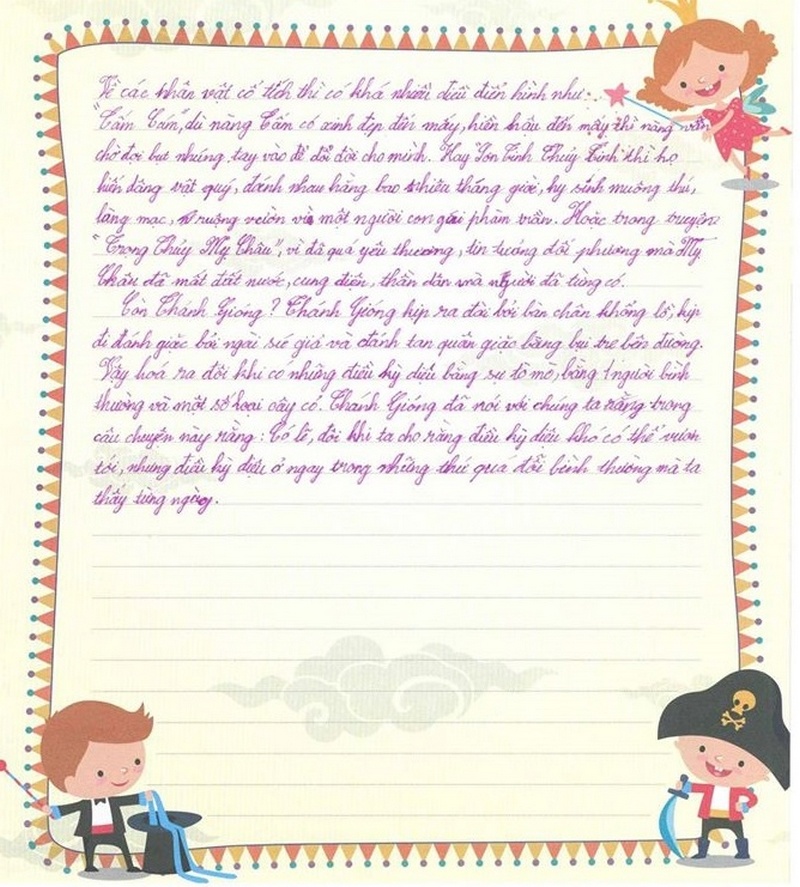 Về các nhân vật cổ tích thì có khá nhiều điều điển hình như:
"Tấm Cám", dù nàng Tấm có xinh đẹp đến mấy, hiền hậu đến mấy thì nàng vẫn
chờ đợi bụt nhúng tay vào để đổi đời cho mình. Hay Sơn Tinh Thuỷ Tinh thì họ
hiến dâng vật quý, đánh nhau hằng bao nhiêu tháng giời, hy sinh muông thú,
làng mạc, ruộng vườn vì một người con gái phàm trần. Hoặc trong truyện
"Trọng Thủy Mỵ Châu", vì đã quá yêu thương, tin tưởng đối phương mà Mỵ
Châu đã mất đất nước, cung điện, thần dân mà người đã từng có.
Còn Thánh Gióng? Thánh Gióng kịp ra đời bởi bàn chân khổng lồ, kịp
đi đánh giặc bởi ngài sứ giả và đánh tan quân giặc bằng bụi tre bên đường.
Vậy hoá ra đôi khi có những điều kỳ diệu bằng sự tò mò, bằng 1 người bình
thường và một số loại cây cỏ. Thánh Gióng đã nói với chúng ta rằng trong
câu chuyện này rằng: Có lẽ, đôi khi ta cho rằng điều kỳ diệu khó có thể vươn
tới, nhưng điều kỳ diệu ở ngay trong những thứ quá đỗi bình thường mà ta
thấy từng ngày.